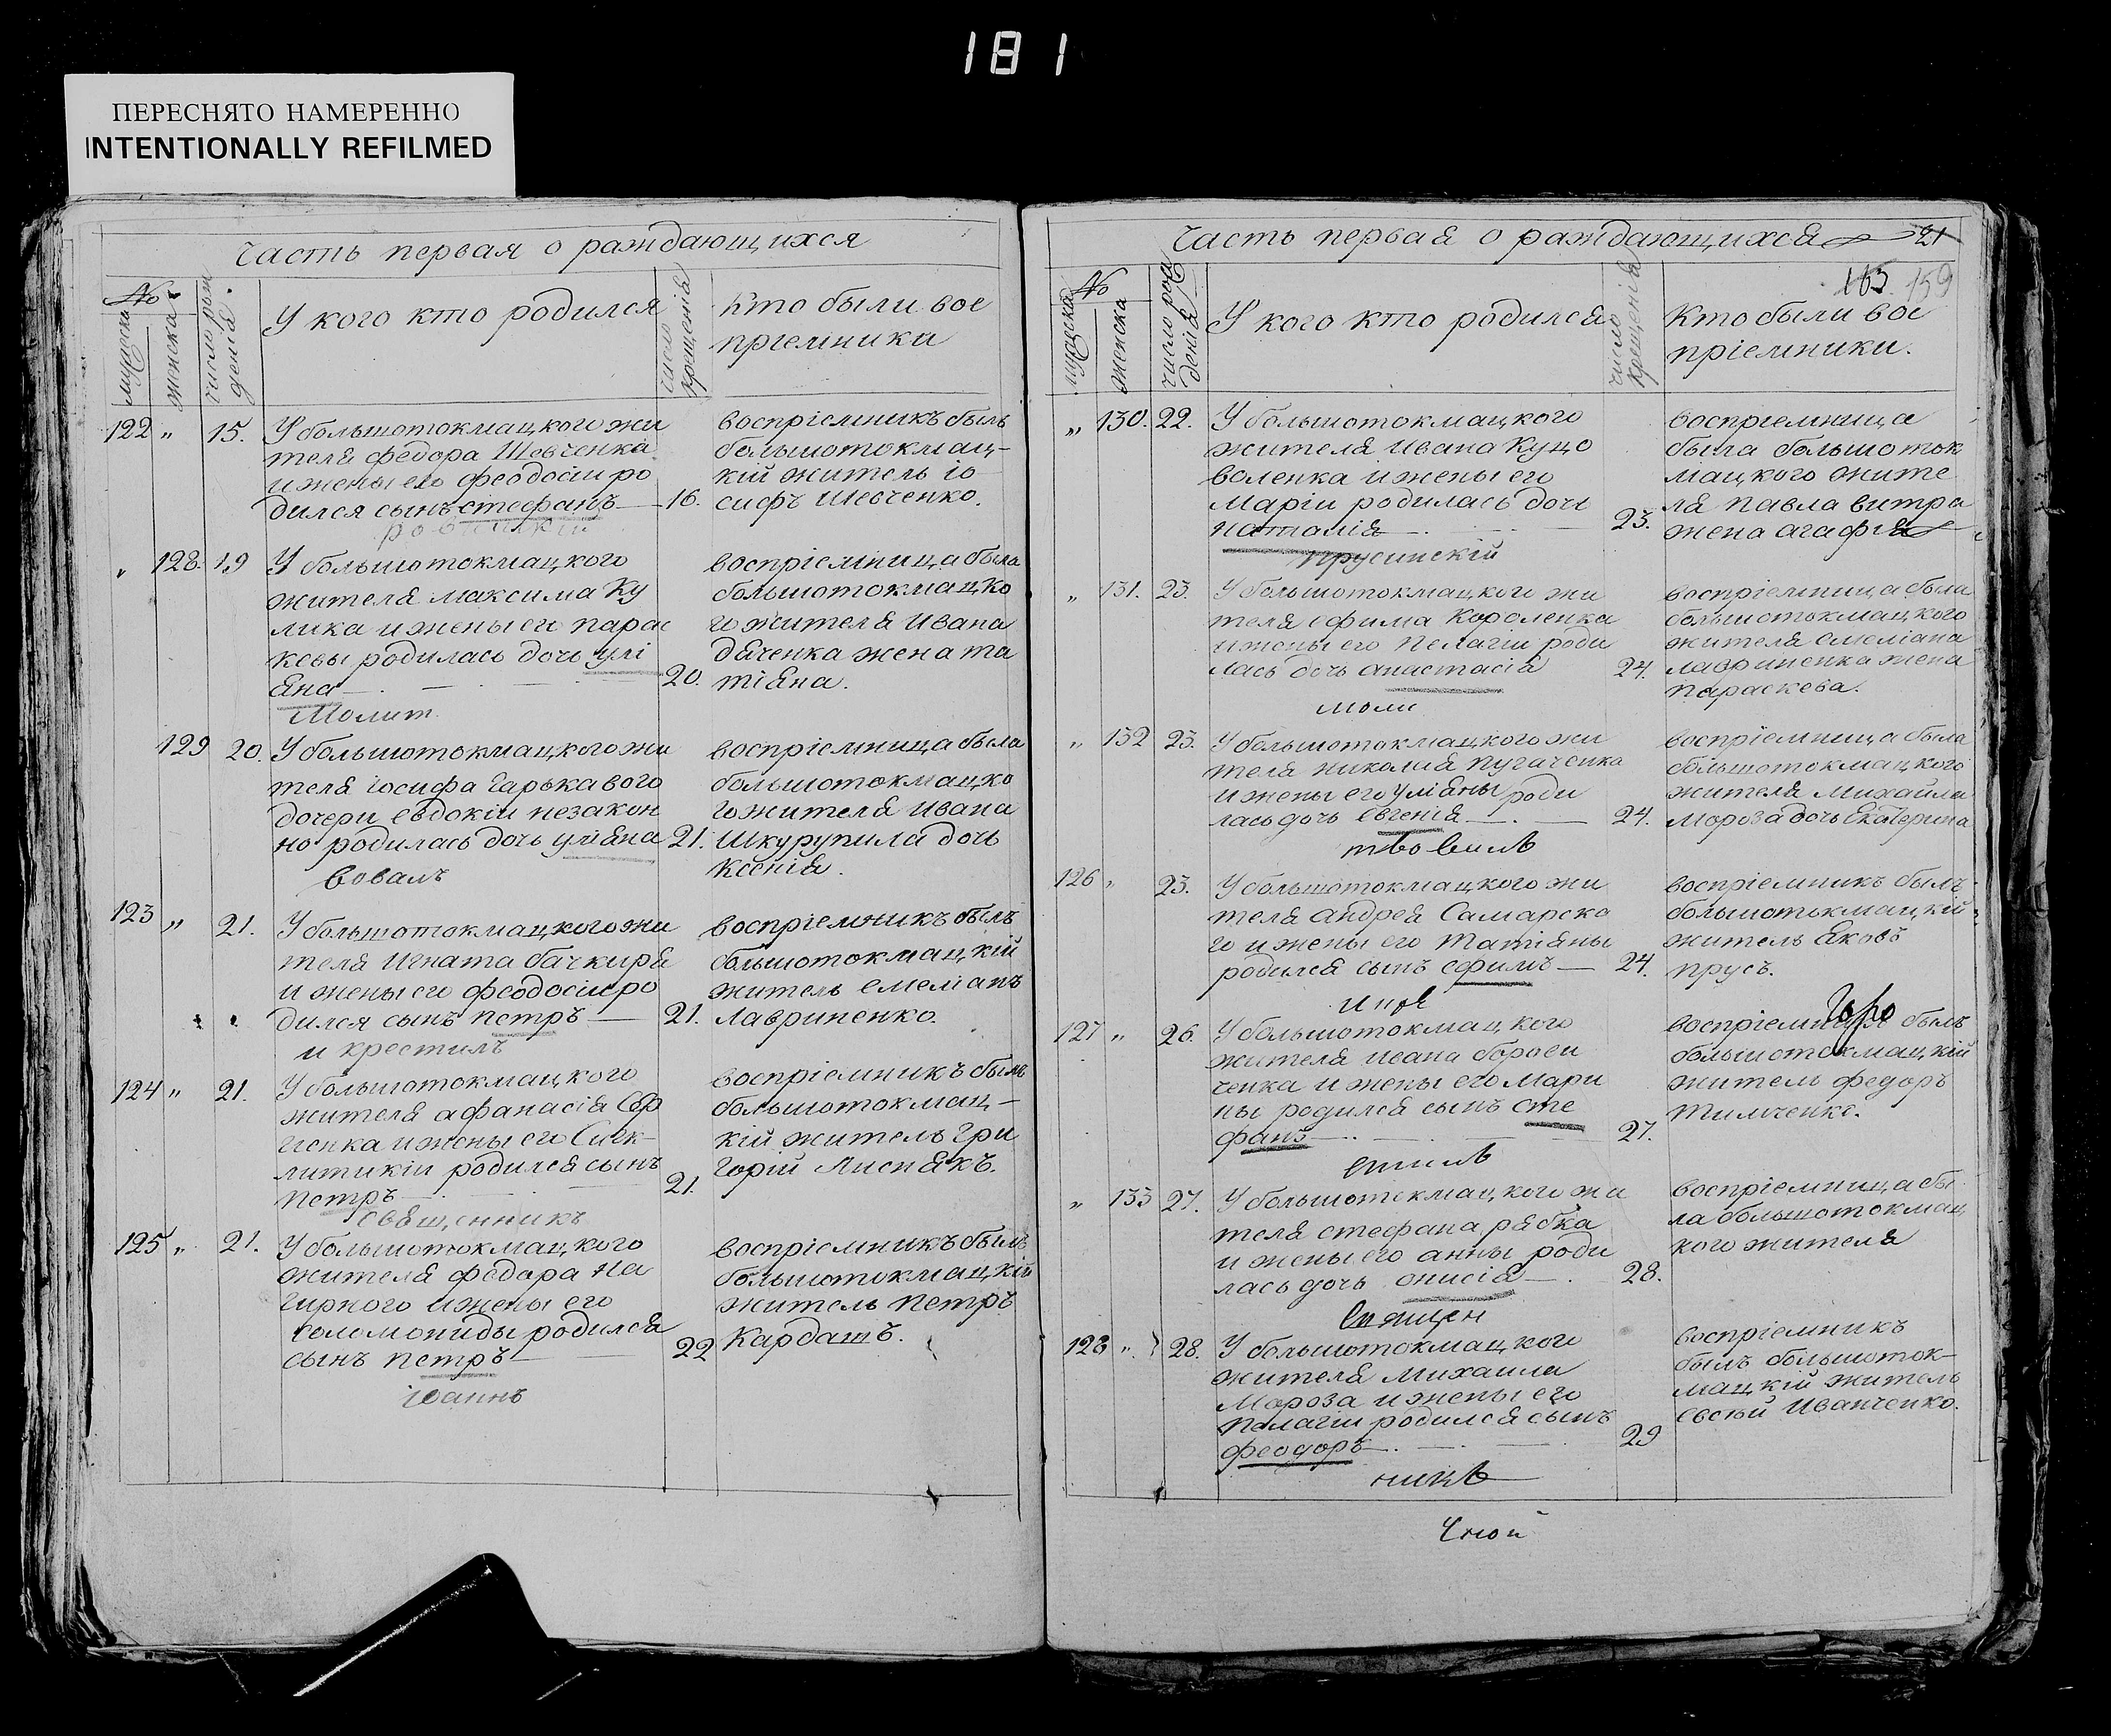 181
ПЕРЕСНЯТО НАМЕРЕННО
INTENTIONALLY REFILMED
Часть первая о раждающихся
№
мужеска
женска
число рож
денія
У кого кто родился
число
крещенія
Кто были вос
пріемники
122 " 15. У большотокмацкого жи
теля федора Шевченка
и жены его феодосіи ро
дился сынъ стефанъ 16.
воспріемникъ былъ
большотокмац-
кій житель іо
сифъ Шевченко.
" 128. 19 У большотокмацкого
жителя максима Ку
лика и жены его парас
кевы родилась дочь улі
яна 20.
воспріемница была
большотокмацко
го жителя Ивана
дяченка жена та
тіяна.
Молит
129 20. У большотокмацкого жи
теля іосифа Гарькавого
дочери евдокіи незакон
но родилась дочь уліяна 21.
воспріемница была
большотокмацко
го жителя Ивана
Шкурупила дочь
Ксенія.
вовалъ
123 " 21. У большотокмацкого жи
теля Игната бачкиря
и жены его феодосіи ро
дился сынъ петръ 21.
воспріемникъ былъ
большотокмацкій
житель емеліанъ
Лавриненко.
и крестилъ
124 " 21. У большотокмацкого
жителя афанасія
и жены его Синк-
литикіи родился сынъ
петръ 21.
воспріемникъ былъ
большотокмац-
кій житель Гри
горій Лиснякъ.
священникъ
125 " 21. У большотокмацкого
жителя федора На
гирного и жены его
соломониды родился
сынъ петръ 22
воспріемникъ былъ
большотокмацкій
житель петръ
Кардашъ.
іоаннъ
Часть первая о раждающихся 21
165. 159
№
мужеска
женска
число рож
денія
У кого кто родился
число
крещенія
Кто были вос
пріемники.
" 130. 22. У большотокмацкого
жителя Ивана Куцо
воленка и жены его
Маріи родилась дочь
наталія 23.
воспріемница
была большоток
мацкого жите
ля павла витра
жена агафія
Прусинскій
" 131. 23. У большотокмацкого жи
теля ефима Короленка
и жены его Пелагіи роди
лась дочь анастасія 24.
воспріемница была
большотокмацкого
жителя емеліана
лавриненка жена
параскева.
моли
" 132 23. У большотокмацкого жи
теля николая пугаченка
и жены его уліяны роди
лась дочь евгенія 24.
воспріемница была
большотокмацкого
жителя Михайла
Мороза дочь Екатерина
126 " 23. У большотокмацкого жи
теля андрея Самарско
го и жены его татіяны
родился сынъ ефимъ 24.
воспріемникъ былъ
большотокмацкій
житель яковъ
прусъ.
127 " 26. У большотокмацкого
жителя ивана борови
ченка и жены его Мари
ны родился сынъ сте
фанъ 27.
былъ
большотокмацкій
житель федоръ
Тимченко.
" 133 27. У большотокмацкого жи
теля стефана рябка
и жены его анны роди
лась дочь онисія 28.
воспріемница бы
ла большотокмац
кого жителя
Священ
128 " 28. У большотокмацкого
жителя михаила
Мороза и жены его
Пелагіи родился сынъ
феодоръ 29
воспріемникъ
былъ большоток-
мацкій житель
евсѣй Иванченко.
никъ